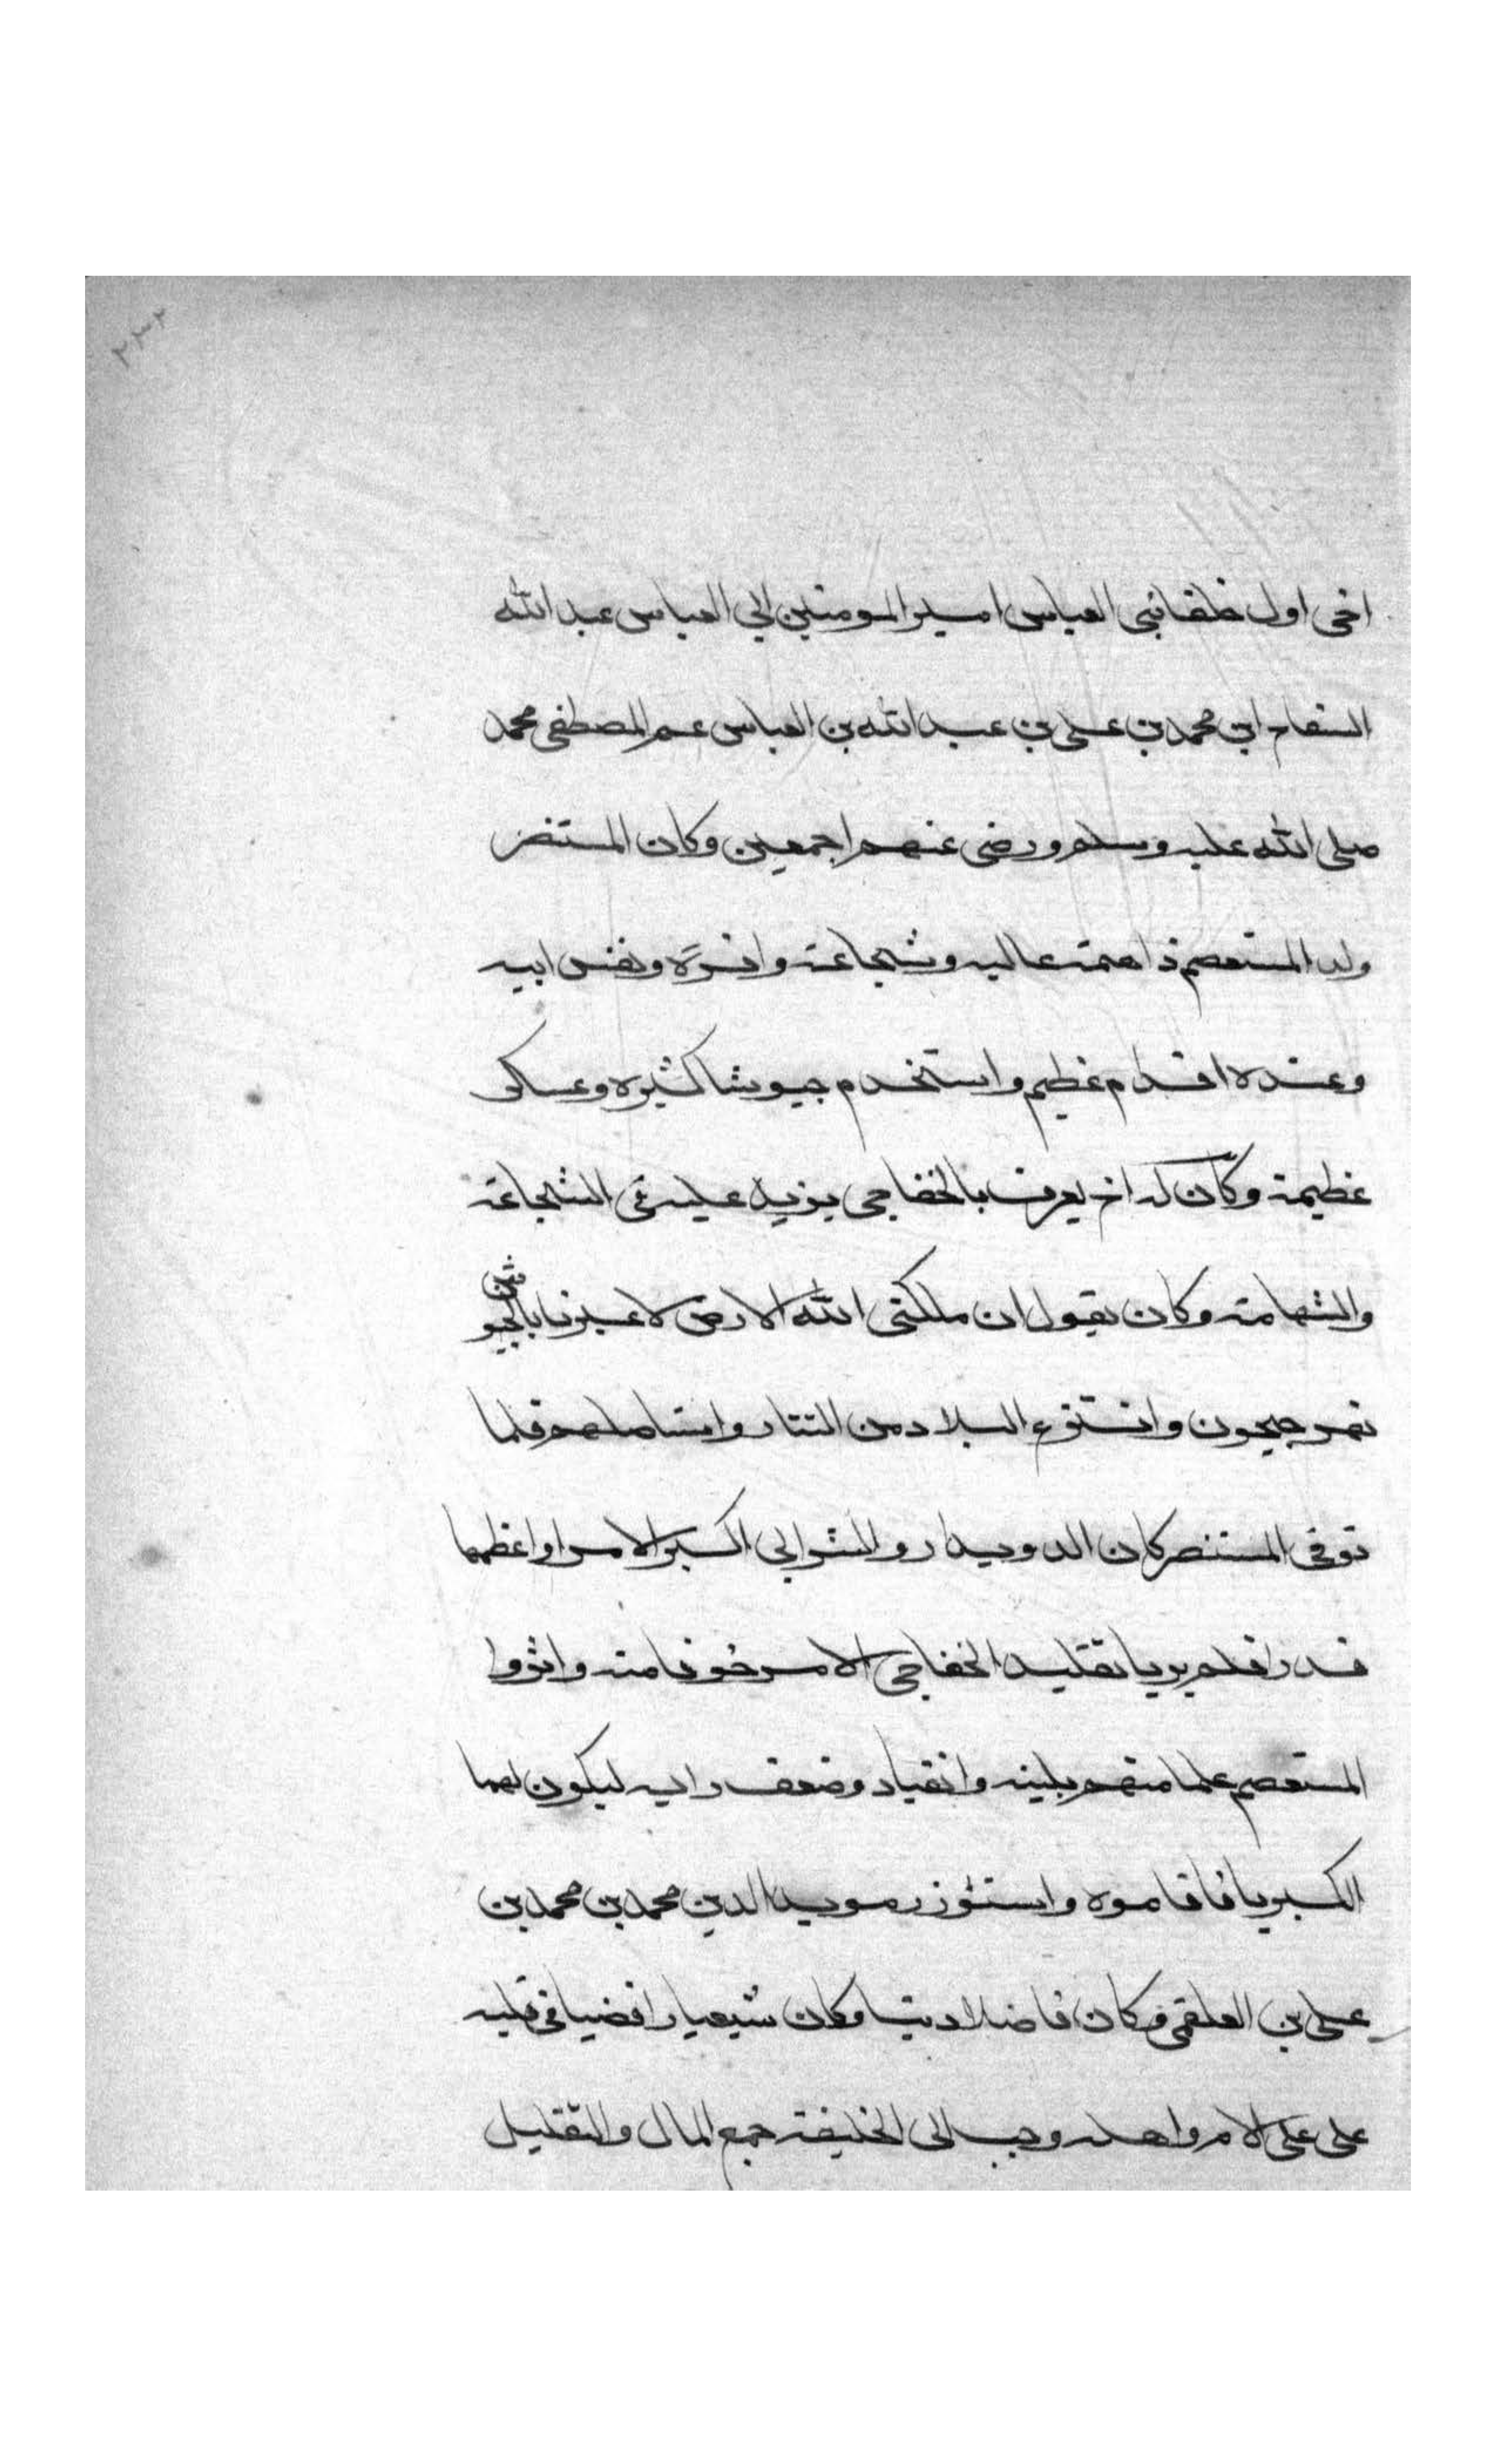 ٢٣٢
اخى اول خلفا بنى العباس امير المومنين ابى العباس عبد الله
السفاح ابن محمد بن على بن عبد الله بن العباس عم المصطفى محمد
صلى الله عليه وسلم ورضى عنهم اجمعين وكان المستنصر
ولد المستعصم ذا همة عاليه وشجاعة وافرة ونفس ابيه
وعنده اقدام عظيم واستخدم جيوشا كثيره وعساكر
عظيمة وكان له اخ يعرف بالخفاجى يزيد عليه فى الشجاعة
والشهامة وكان يقول ان ملكنى الله الارض لاعبرن بالجيوش
نهر جيحون وانتزع البلاد من التتار واستاصلهم فلما
توفى المستنصر كان الدويدار والشرابى اكبر الامرا واعظمها
قدرا فلم يريا تقليد الخفاجى الامر خوفا منه واثروا
المستعصم علما منهم بلينه وانقياد وضعف رايه ليكون لهما
الكبريا فاقاموه واستوزر مويد الدين محمد بن محمد بن
على بن العلقمى وكان فاضلا وكان شيعيا رافضيا فى قلبه
على الاسلام واهله وحبب الى الخليفة جمع المال والتقليل